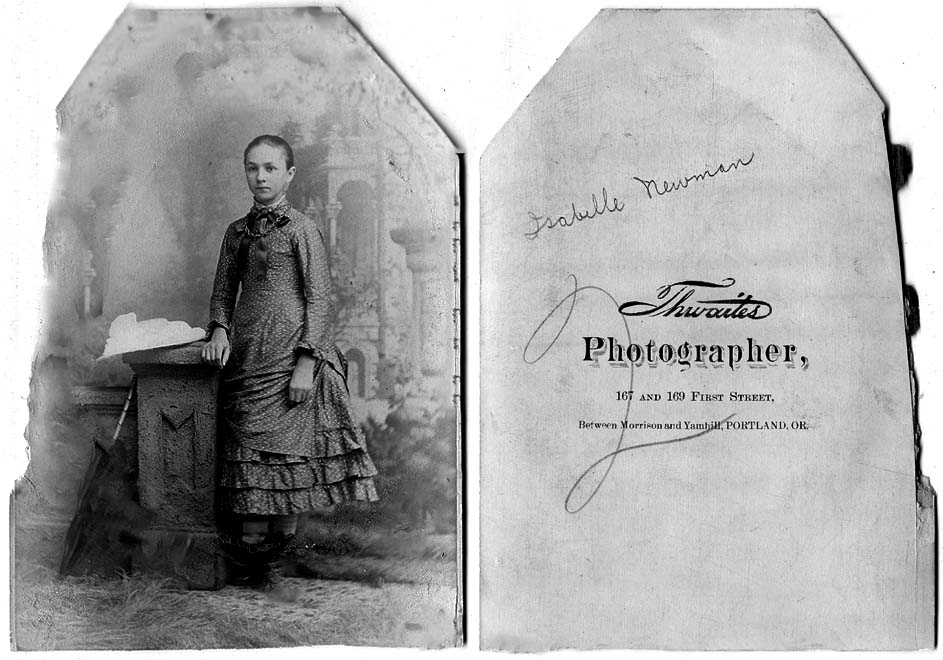 Isabelle Newman
Thwaites
Photographer,
167 AND 169 FIRST STREET,
Between Morrison and Yamhill, PORTLAND, OR.